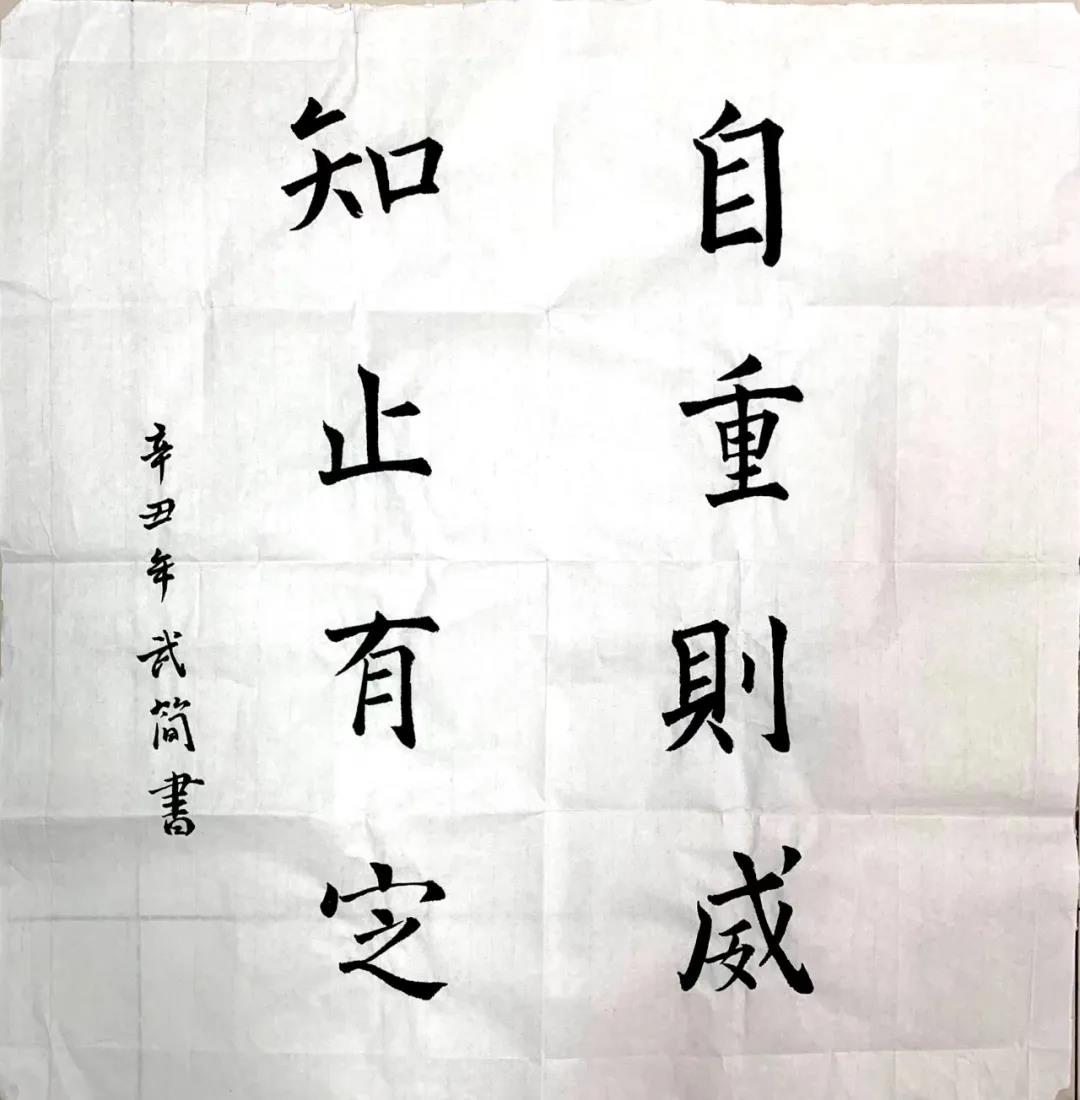 自重則威
知止有定
辛丑年武简書